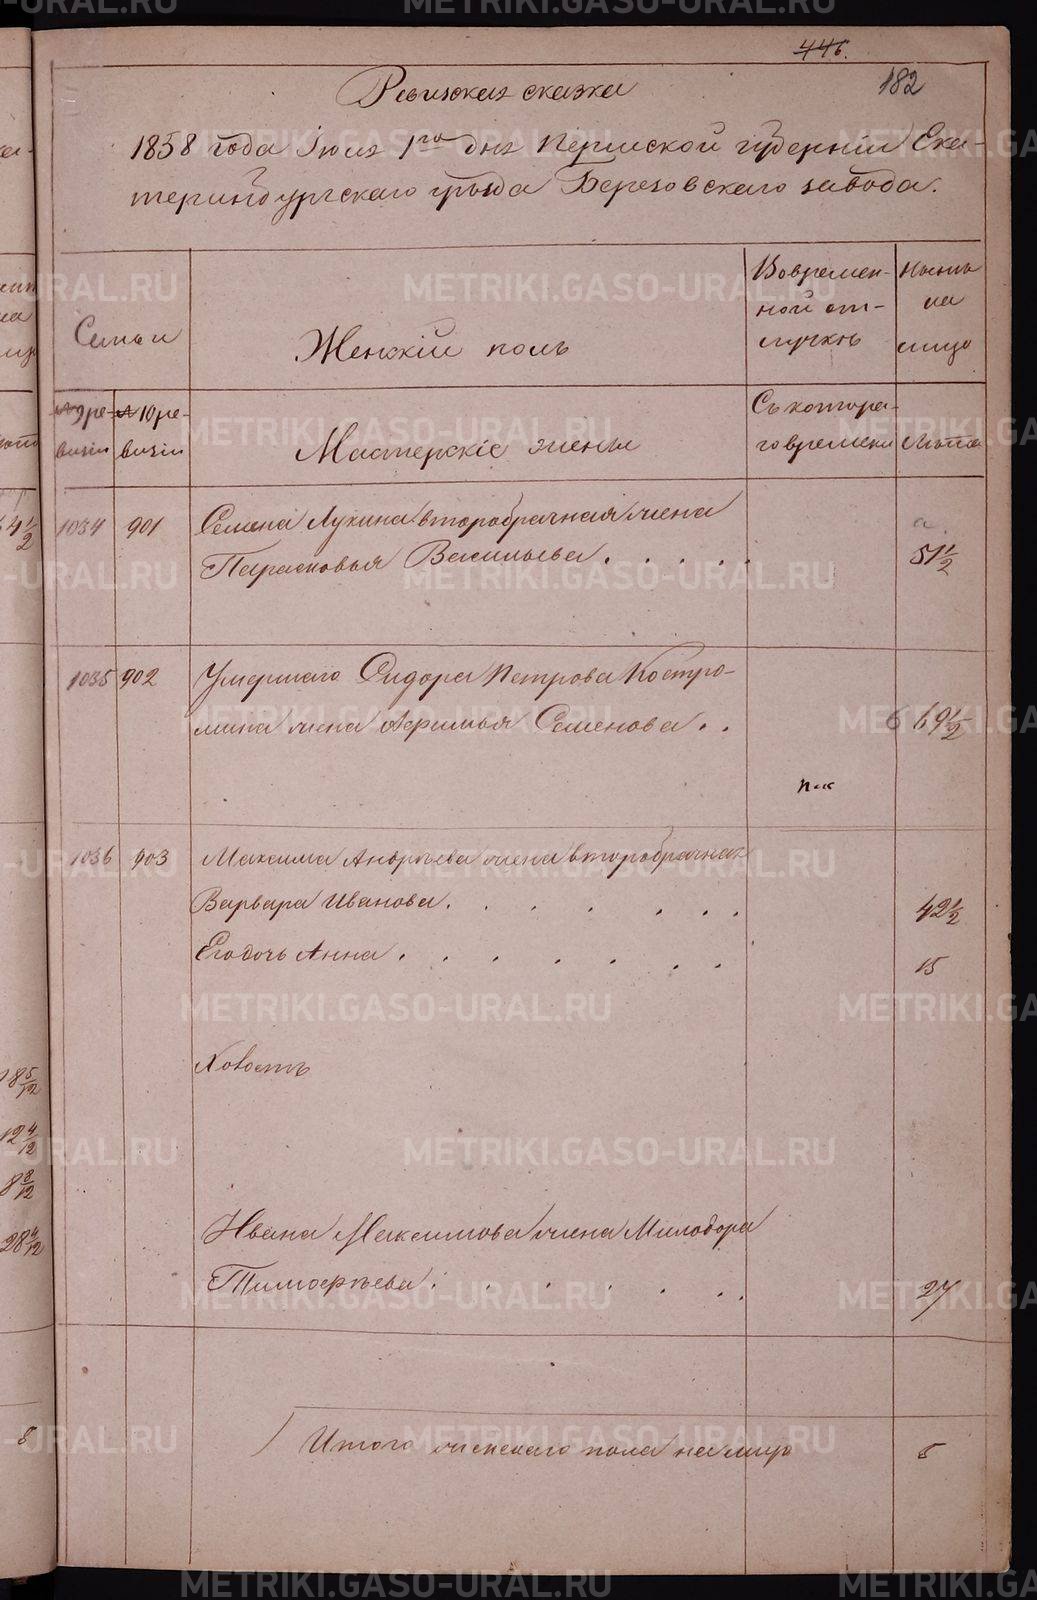 446.
182
Ревизская сказка
1858 года Июля 1го дня Пермской губернии Ека-
теринбургскаго уѣзда Березовскаго завода.
Семьи
Женскій полъ
Вовремен-
ной от-
лучкѣ
Ныньѣ
на
лицо
№ 9 ре-
визіи
№ 10 ре-
визіи
Мастерскіе жены
Съ котора-
го времени
Лѣта
1034 901 Семена Лукина второбрачная жена
Парасковья Васильева . . . . . 51 1/2
1035 902 Умершаго Сидора Петрова Костро-
мина жена Афимья Семенова . . 69 1/2
1036 903 Максима Андрѣева жена второбрачная
Варвара Иванова . . . . . . . 42 1/2
Егодочь Анна . . . . . . . . 15
Холостъ
Ивана Максимова жена Милодора
Тимофѣева . . . . . . . 27
Итого женскаго пола на лицо 5
METRIKI.GASO-URAL.RU